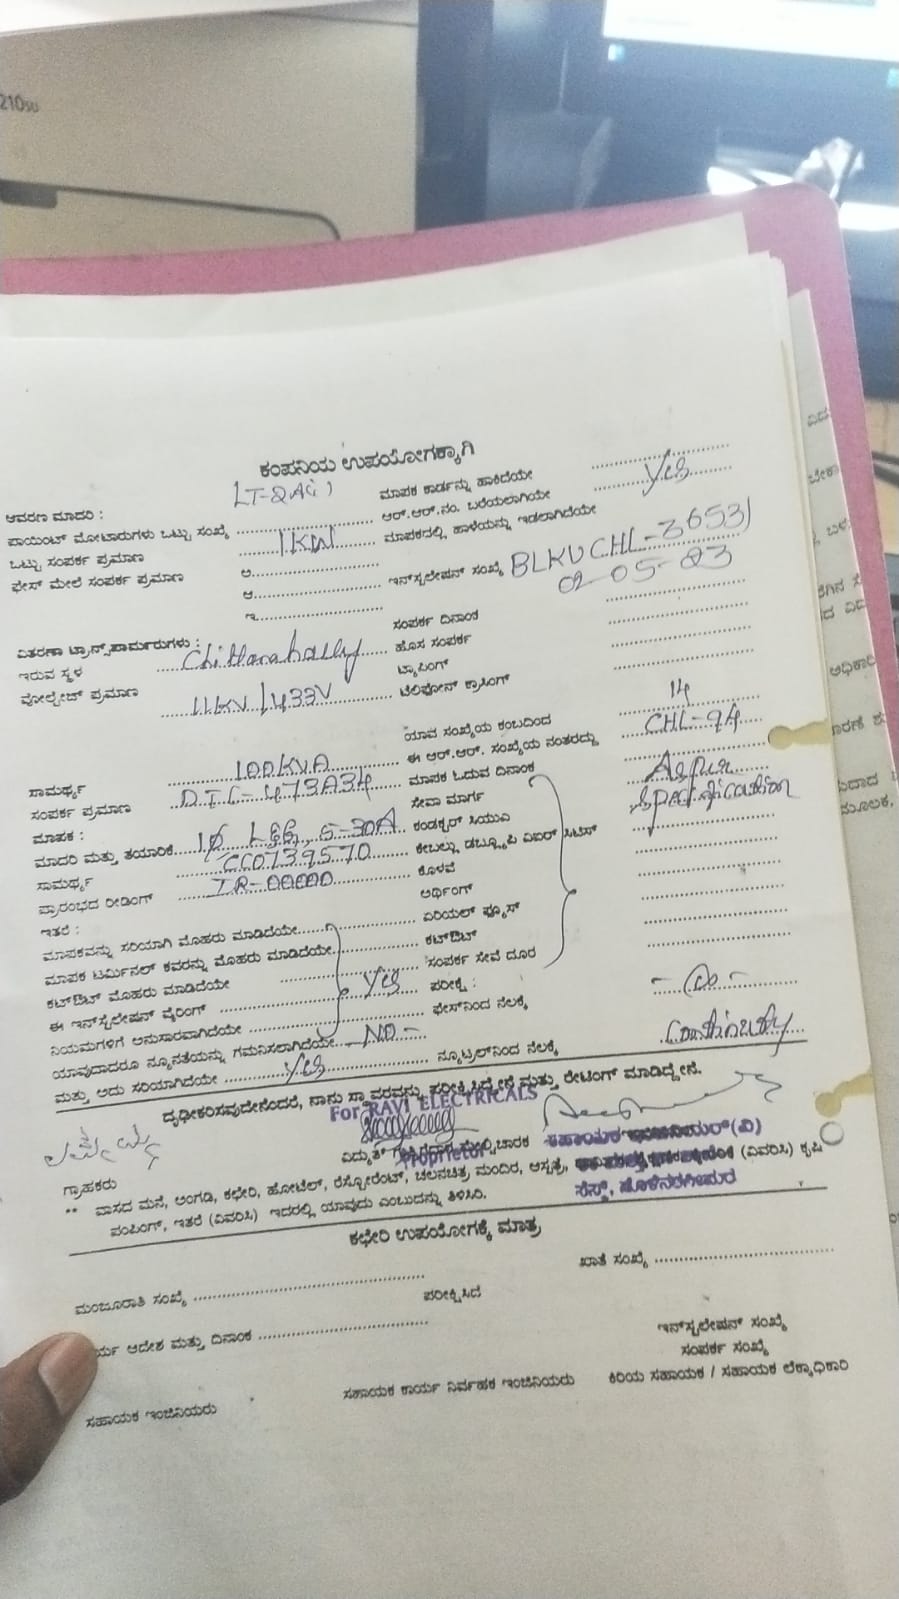 210SU
ಕಂಪನಿಯ ಉಪಯೋಗಕ್ಕಾಗಿ
ಆವರಣ ಮಾದರಿ : LT-2A(i) ಮಾಪಕ ಕಾರ್ಡನ್ನು ಹಾಕಿದೆಯೇ
ಪಾಯಿಂಟ್ ಮೋಟಾರುಗಳು ಒಟ್ಟು ಸಂಖ್ಯೆ ಆರ್.ಆರ್.ನಂ. ಬರೆಯಲಾಗಿಯೇ Yes
ಒಟ್ಟು ಸಂಪರ್ಕ ಪ್ರಮಾಣ 1KW ಮಾಪಕದಲ್ಲಿ ಹಾಳೆಯನ್ನು ಇಡಲಾಗಿದೆಯೇ
ಫೇಸ್ ಮೇಲೆ ಸಂಪರ್ಕ ಪ್ರಮಾಣ ಅ
ಆ ಇನ್‌ಸ್ಟಲೇಷನ್ ಸಂಖ್ಯೆ BLKUCHL-36531
ಇ 02-05-23
ವಿತರಣಾ ಟ್ರಾನ್ಸ್‌ಫಾರ್ಮರುಗಳು : ಸಂಪರ್ಕ ದಿನಾಂಕ
ಇರುವ ಸ್ಥಳ Chittanahally ಹೊಸ ಸಂಪರ್ಕ
ವೋಲ್ಟೇಜ್ ಪ್ರಮಾಣ 11KV/433V ಟ್ಯಾಪಿಂಗ್
ಟೆಲಿಫೋನ್ ಕ್ರಾಸಿಂಗ್
ಯಾವ ಸಂಖ್ಯೆಯ ಕಂಬದಿಂದ 14
ಸಾಮರ್ಥ್ಯ 100KVA ಈ ಆರ್.ಆರ್. ಸಂಖ್ಯೆಯ ನಂತರದ್ದು CHL-94
ಸಂಪರ್ಕ ಪ್ರಮಾಣ DTC-473A34 ಮಾಪಕ ಓದುವ ದಿನಾಂಕ
ಮಾಪಕ : ಸೇವಾ ಮಾರ್ಗ As per
ಮಾದರಿ ಮತ್ತು ತಯಾರಿಕೆ 1Ø L&G 5-30A ಕಂಡಕ್ಟರ್ ಸಿಯುವಿ Specification
ಸಾಮರ್ಥ್ಯ CC0739570 ಕೇಬಲ್ಲು ಡಬ್ಲ್ಯೂಪಿ ವಿಐಆರ್
ಪ್ರಾರಂಭದ ರೀಡಿಂಗ್ IR-00000 ಕೊಳವೆ
ಇತರೆ : ಅರ್ಥಿಂಗ್
ಮಾಪಕವನ್ನು ಸರಿಯಾಗಿ ಮೊಹರು ಮಾಡಿದೆಯೇ ಏರಿಯಲ್ ಫ್ಯೂಸ್
ಮಾಪಕ ಟರ್ಮಿನಲ್ ಕವರನ್ನು ಮೊಹರು ಮಾಡಿದೆಯೇ ಕಟ್‌ಔಟ್
ಕಟ್‌ಔಟ್ ಮೊಹರು ಮಾಡಿದೆಯೇ ಸಂಪರ್ಕ ಸೇವೆ ದೂರ
ಈ ಇನ್‌ಸ್ಟಲೇಷನ್ ವೈರಿಂಗ್ Yes ಪರೀಕ್ಷೆ :
ನಿಯಮಗಳಿಗೆ ಅನುಸಾರವಾಗಿದೆಯೇ ಫೇಸ್‌ನಿಂದ ನೆಲಕ್ಕೆ
ಯಾವುದಾದರೂ ನ್ಯೂನತೆಯನ್ನು ಗಮನಿಸಲಾಗಿದೆಯೇ NO
ಮತ್ತು ಅದು ಸರಿಯಾಗಿದೆಯೇ Yes ನ್ಯೂಟ್ರಲ್‌ನಿಂದ ನೆಲಕ್ಕೆ Continuity
ದೃಢೀಕರಿಸುವುದೇನೆಂದರೆ, ನಾನು ಸ್ಥಾವರವನ್ನು ಪರೀಕ್ಷಿಸಿದ್ದೇನೆ ಮತ್ತು ರೇಟಿಂಗ್ ಮಾಡಿದ್ದೇನೆ.
For RAVI ELECTRICALS
Proprietor
ಗ್ರಾಹಕರು
** ವಾಸದ ಮನೆ, ಅಂಗಡಿ, ಕಛೇರಿ, ಹೋಟೆಲ್, ರೆಸ್ಟೋರೆಂಟ್, ಚಲನಚಿತ್ರ ಮಂದಿರ, ಆಸ್ಪತ್ರೆ, (ವಿವರಿಸಿ) ಕೃಷಿ
ಪಂಪಿಂಗ್, ಇತರೆ (ವಿವರಿಸಿ) ಇದರಲ್ಲಿ ಯಾವುದು ಎಂಬುದನ್ನು ತಿಳಿಸಿರಿ.
ಕಛೇರಿ ಉಪಯೋಗಕ್ಕೆ ಮಾತ್ರ
ಮಂಜೂರಾತಿ ಸಂಖ್ಯೆ ಖಾತೆ ಸಂಖ್ಯೆ
ಆದೇಶ ಮತ್ತು ದಿನಾಂಕ ಪರೀಕ್ಷಿಸಿದೆ
ಇನ್‌ಸ್ಟಲೇಷನ್ ಸಂಖ್ಯೆ
ಸಂಪರ್ಕ ಸಂಖ್ಯೆ
ಸಹಾಯಕ ಇಂಜಿನಿಯರು ಸಹಾಯಕ ಕಾರ್ಯ ನಿರ್ವಾಹಕ ಇಂಜಿನಿಯರು ಕಿರಿಯ ಸಹಾಯಕ / ಸಹಾಯಕ ಲೆಕ್ಕಾಧಿಕಾರಿ